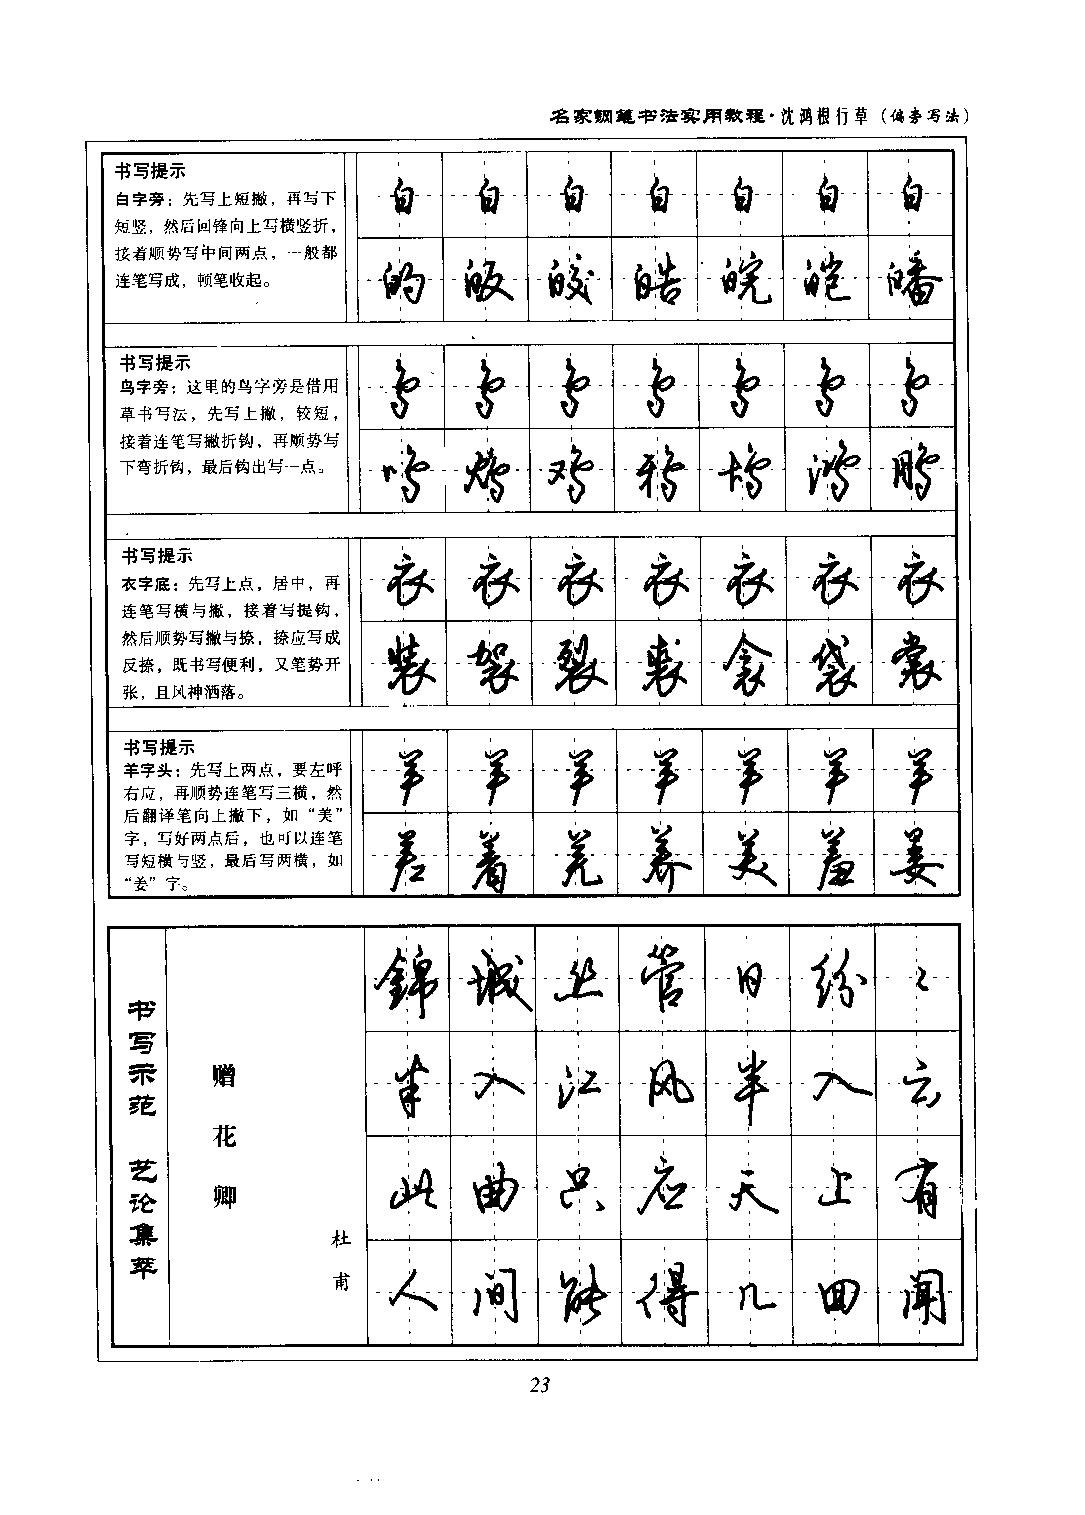 名家钢笔书法实用教程·沈鸿根行草（偏旁写法）
书写提示
白字旁：先写上短撇，再写下
短竖，然后回锋向上写横竖折，
接着顺势写中间两点，一般都
连笔写成，顿笔收起。
白 白 白 白 白 白 白
的 皈 皎 皓 皖 皑 皤
书写提示
鸟字旁：这里的鸟字旁是借用
草书写法，先写上撇，较短，
接着连笔写撇折钩，再顺势写
下弯折钩，最后钩出写一点。
鸟 鸟 鸟 鸟 鸟 鸟 鸟
鸣 鸡 鸦 鸿 鹏
书写提示
衣字底：先写上点，居中，再
连笔写横与撇，接着写提钩，
然后顺势写撇与捺，捺应写成
反捺，既书写便利，又笔势开
张，且风神洒落。
衣 衣 衣 衣 衣 衣 衣
装 袈 裂 裁 衾 袋 裳
书写提示
羊字头：先写上两点，要左呼
右应，再顺势连笔写三横，然
后翻译笔向上撇下，如“美”
字，写好两点后，也可以连笔
写短横与竖，最后写两横，如
“姜”字。
羊 羊 羊 羊 羊 羊 羊
差 着 羌 养 美 羞 姜
书写示范 艺论集萃
赠花卿
杜甫
錦 城 丝 管 日 纷 々
半 入 江 风 半 入 云
此 曲 只 应 天 上 有
人 间 能 得 几 回 闻
23